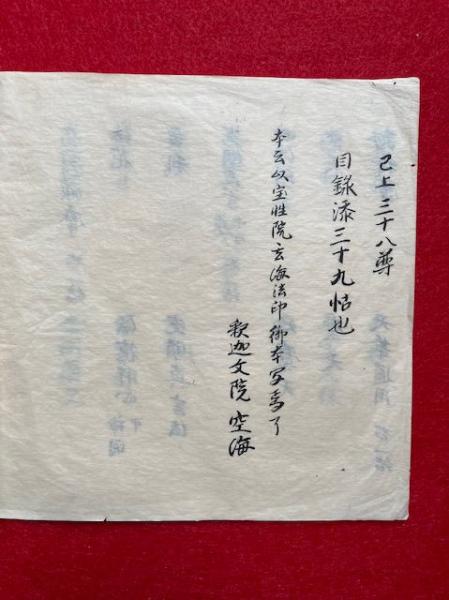 已上三十八尊
目録添三十九帖也
本云以宝性院玄海法印御本写焉了
釈迦文院空海